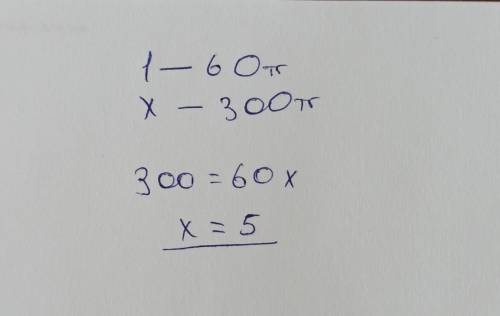 1 — 60 π
x — 300 π
300 = 60 x
x = 5